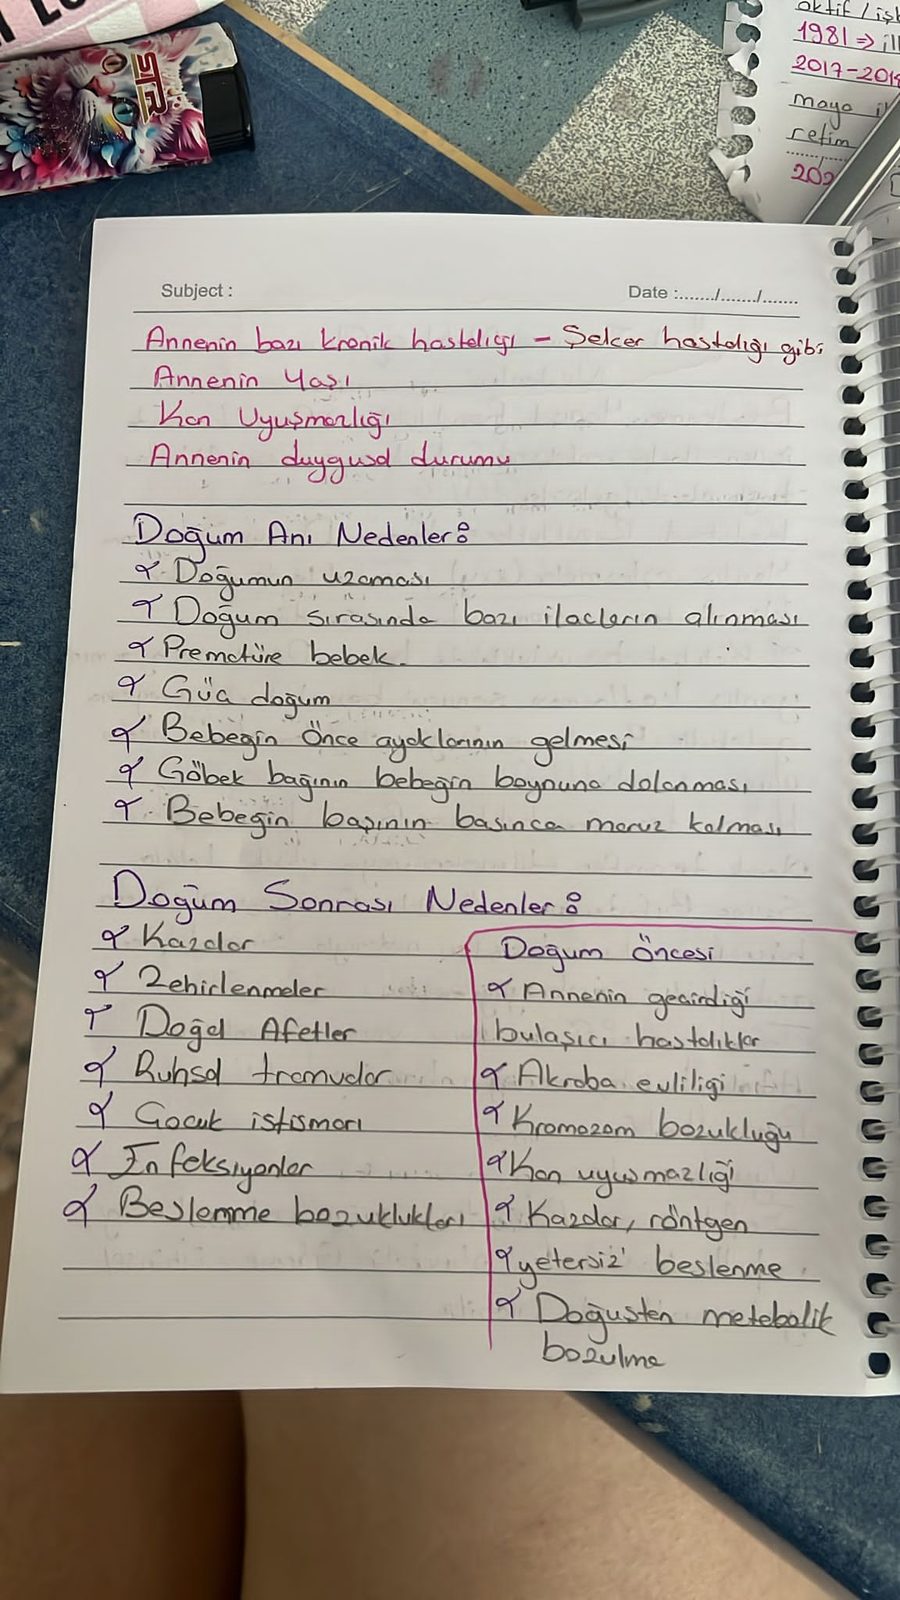 STR
aktif / işl
1981 => ill
2017-201
maya i
retim
202
Subject :
Date :......./......./.......
Annenin bazı kronik hastalığı - Şeker hastalığı gibi
Annenin Yaşı
Kan Uyuşmazlığı
Annenin duygusal durumu
Doğum Anı Nedenler:
Doğumun uzaması
Doğum sırasında bazı ilaçların alınması
Prematüre bebek.
Güç doğum
Bebeğin Önce ayaklarının gelmesi
Göbek bağının bebeğin boynuna dolanması
Bebeğin başının basınca maruz kalması
Doğum Sonrası Nedenler:
Kazalar
Zehirlenmeler
Doğal Afetler
Ruhsal tramvalar
Çocuk istismarı
Enfeksiyonlar
Beslemme bozuklukları
Doğum Öncesi
Annenin geçirdiği
bulaşıcı hastalıklar
Akraba evliliği
Kromozom bozukluğu
Kan uyuşmazlığı
Kazalar, röntgen
yetersiz beslenme
Doğuştan metebolik
bozulma